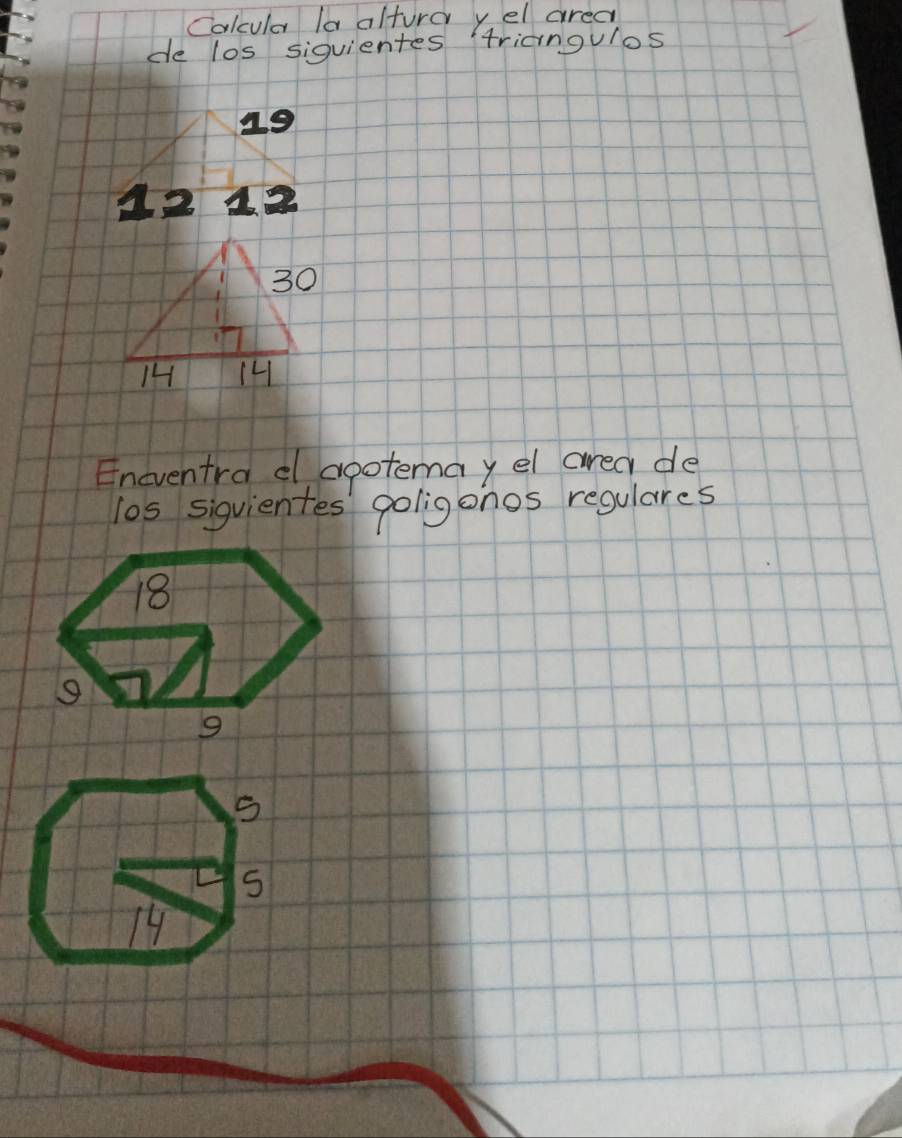 Calcula la altura y el area
de los siguientes triangulos
19
12 12
30
14 14
Encuentra el apotema y el area de
los siguientes poligonos regulares
18
9
9
5
5
14